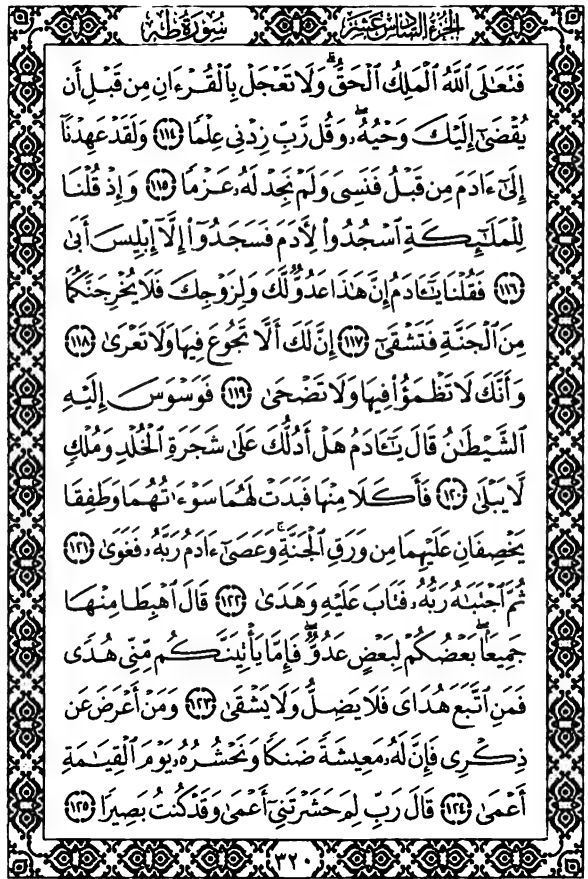 الجزء السادس عشر سورة طه
فَتَعَٰلَى ٱللَّهُ ٱلْمَلِكُ ٱلْحَقُّ ۗ وَلَا تَعْجَلْ بِٱلْقُرْءَانِ مِن قَبْلِ أَن
يُقْضَىٰٓ إِلَيْكَ وَحْيُهُۥ ۖ وَقُل رَّبِّ زِدْنِى عِلْمًا ١١٤ وَلَقَدْ عَهِدْنَآ
إِلَىٰٓ ءَادَمَ مِن قَبْلُ فَنَسِىَ وَلَمْ نَجِدْ لَهُۥ عَزْمًا ١١٥ وَإِذْ قُلْنَا
لِلْمَلَٰٓئِكَةِ ٱسْجُدُوا۟ لِأَدَمَ فَسَجَدُوٓا۟ إِلَّآ إِبْلِيسَ أَبَىٰ
١١٦ فَقُلْنَا يَٰٓـَٔادَمُ إِنَّ هَٰذَا عَدُوٌّ لَّكَ وَلِزَوْجِكَ فَلَا يُخْرِجَنَّكُمَا
مِنَ ٱلْجَنَّةِ فَتَشْقَىٰٓ ١١٧ إِنَّ لَكَ أَلَّا تَجُوعَ فِيهَا وَلَا تَعْرَىٰ ١١٨
وَأَنَّكَ لَا تَظْمَؤُا۟ فِيهَا وَلَا تَضْحَىٰ ١١٩ فَوَسْوَسَ إِلَيْهِ
ٱلشَّيْطَٰنُ قَالَ يَٰٓـَٔادَمُ هَلْ أَدُلُّكَ عَلَىٰ شَجَرَةِ ٱلْخُلْدِ وَمُلْكٍ
لَّا يَبْلَىٰ ١٢٠ فَأَكَلَا مِنْهَا فَبَدَتْ لَهُمَا سَوْءَٰتُهُمَا وَطَفِقَا
يَخْصِفَانِ عَلَيْهِمَا مِن وَرَقِ ٱلْجَنَّةِ ۚ وَعَصَىٰٓ ءَادَمُ رَبَّهُۥ فَغَوَىٰ ١٢١
ثُمَّ ٱجْتَبَٰهُ رَبُّهُۥ فَتَابَ عَلَيْهِ وَهَدَىٰ ١٢٢ قَالَ ٱهْبِطَا مِنْهَا
جَمِيعًۢا ۖ بَعْضُكُمْ لِبَعْضٍ عَدُوٌّ ۖ فَإِمَّا يَأْتِيَنَّكُم مِّنِّى هُدًى
فَمَنِ ٱتَّبَعَ هُدَاىَ فَلَا يَضِلُّ وَلَا يَشْقَىٰ ١٢٣ وَمَنْ أَعْرَضَ عَن
ذِكْرِى فَإِنَّ لَهُۥ مَعِيشَةً ضَنكًا وَنَحْشُرُهُۥ يَوْمَ ٱلْقِيَٰمَةِ
أَعْمَىٰ ١٢٤ قَالَ رَبِّ لِمَ حَشَرْتَنِىٓ أَعْمَىٰ وَقَدْ كُنتُ بَصِيرًا ١٢٥
٣٢٠